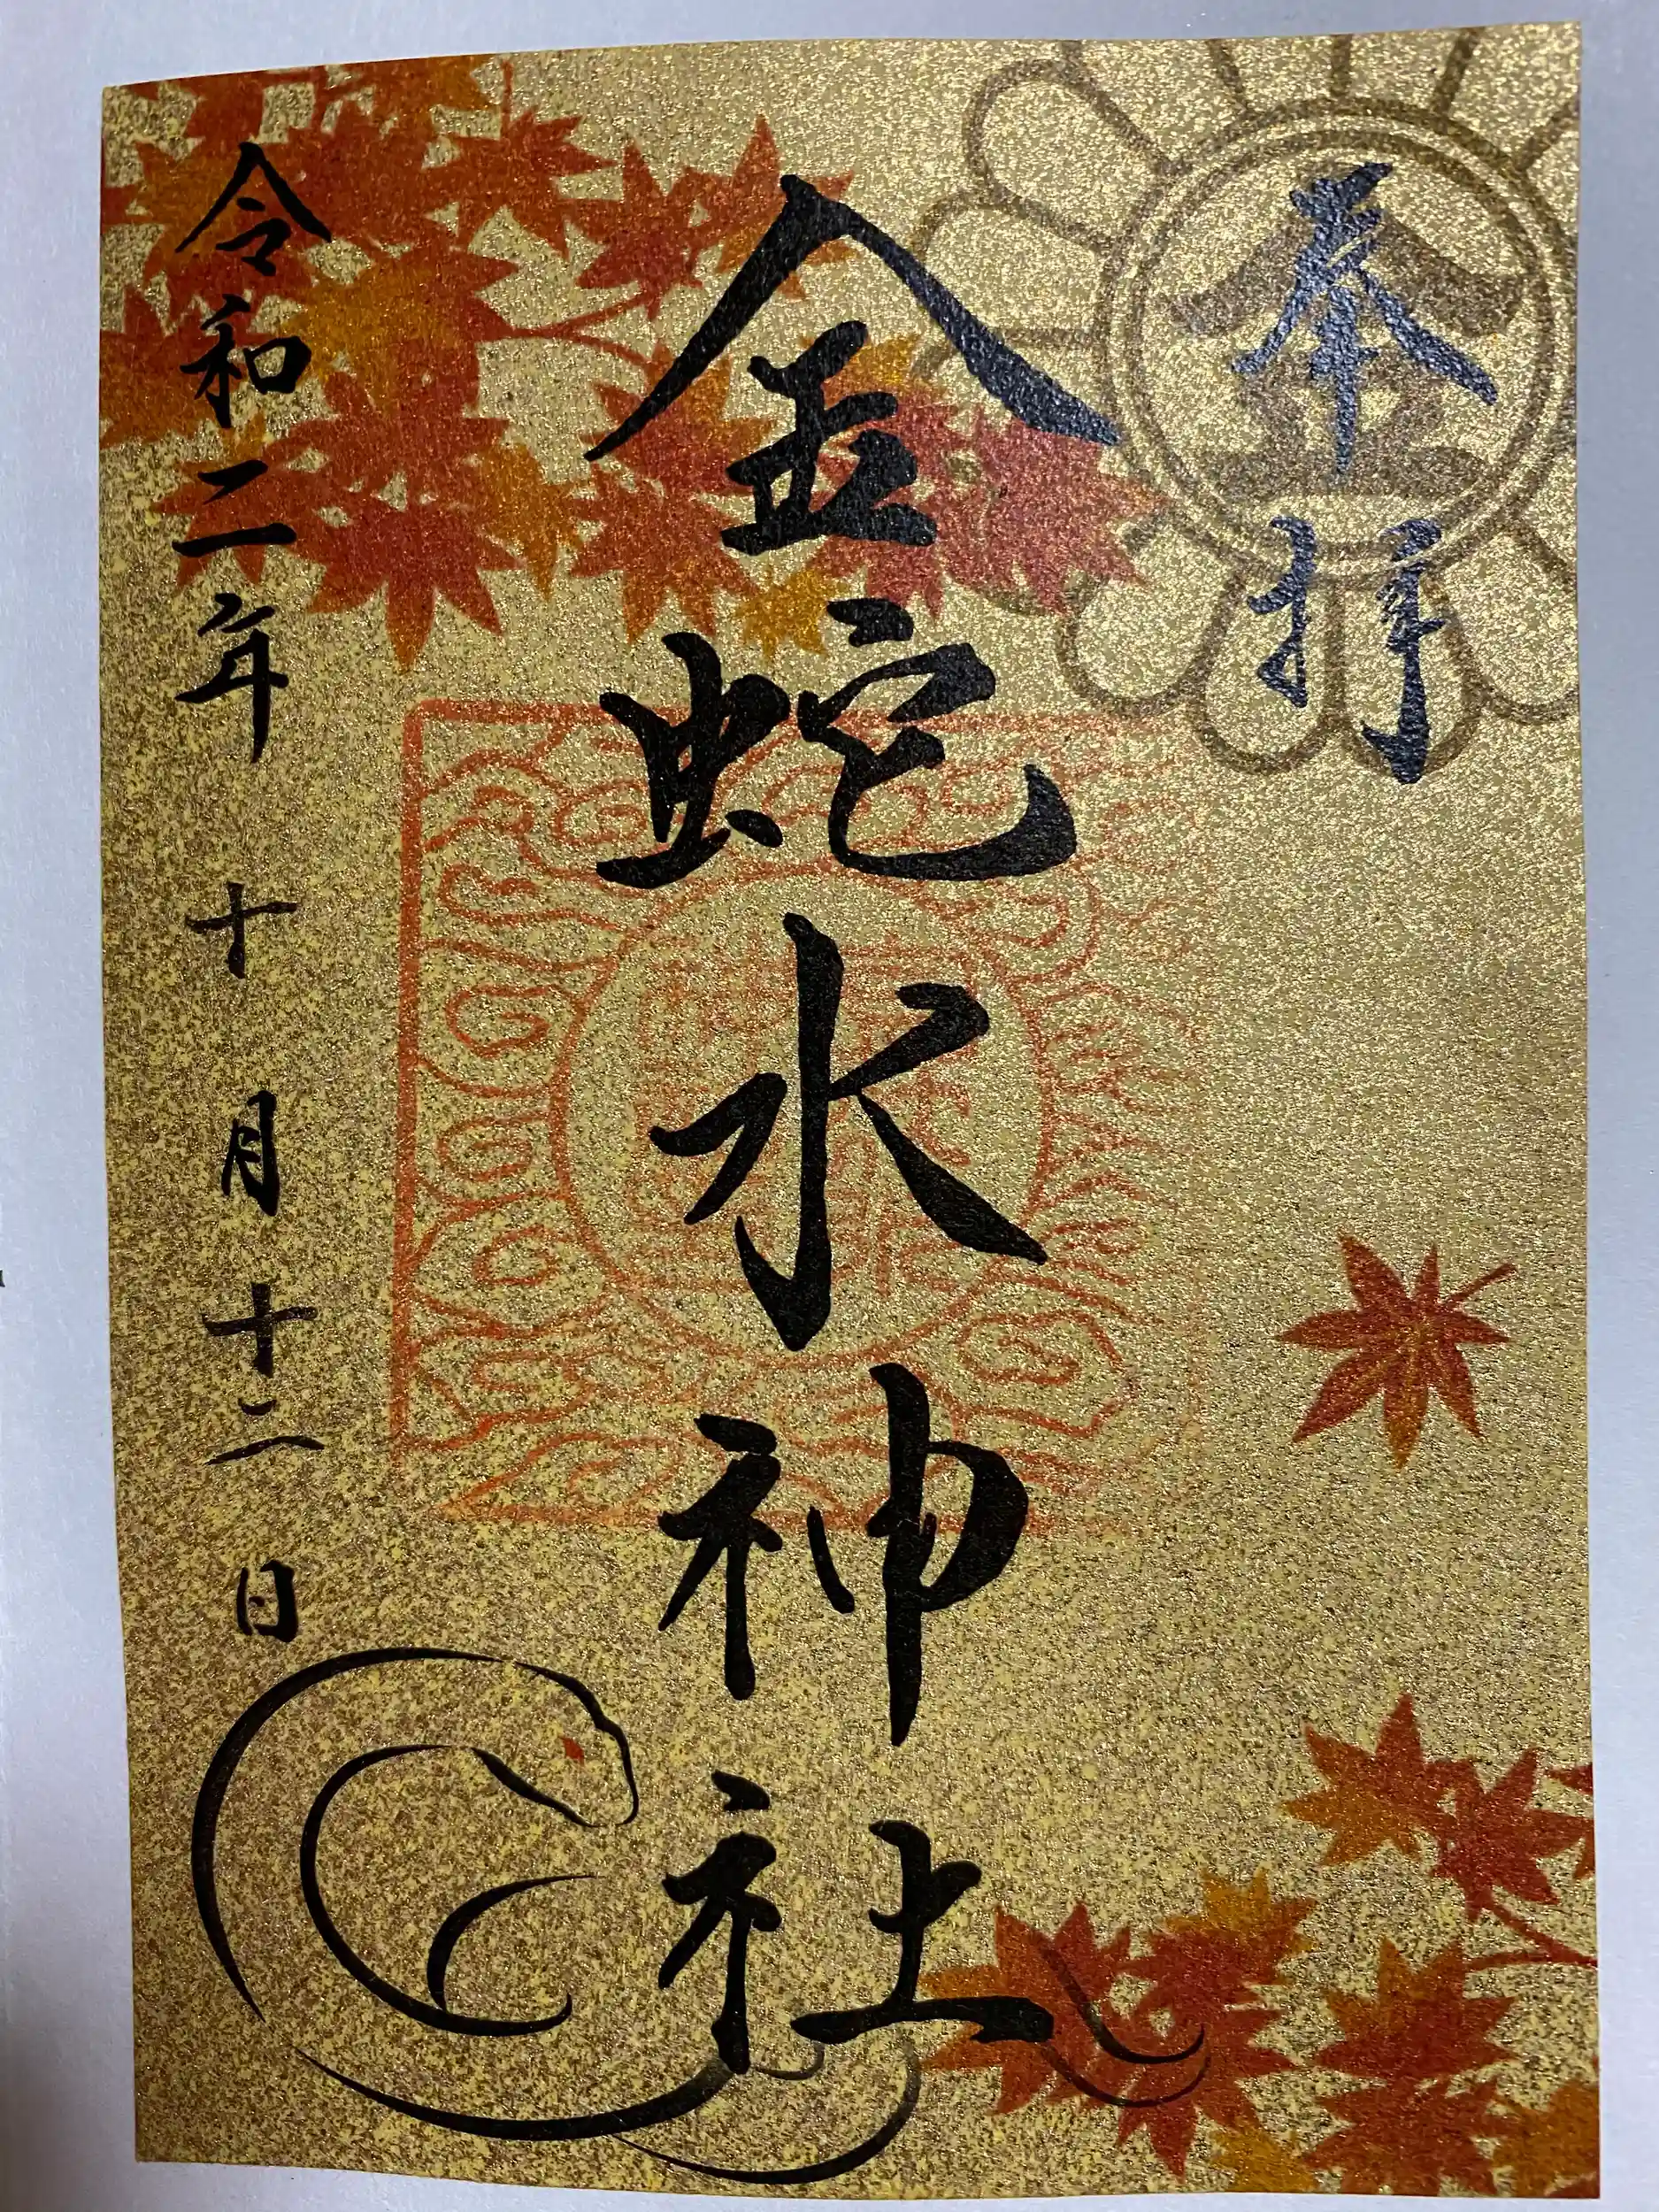 奉拝
金蛇水神社
令和二年 十月十二日